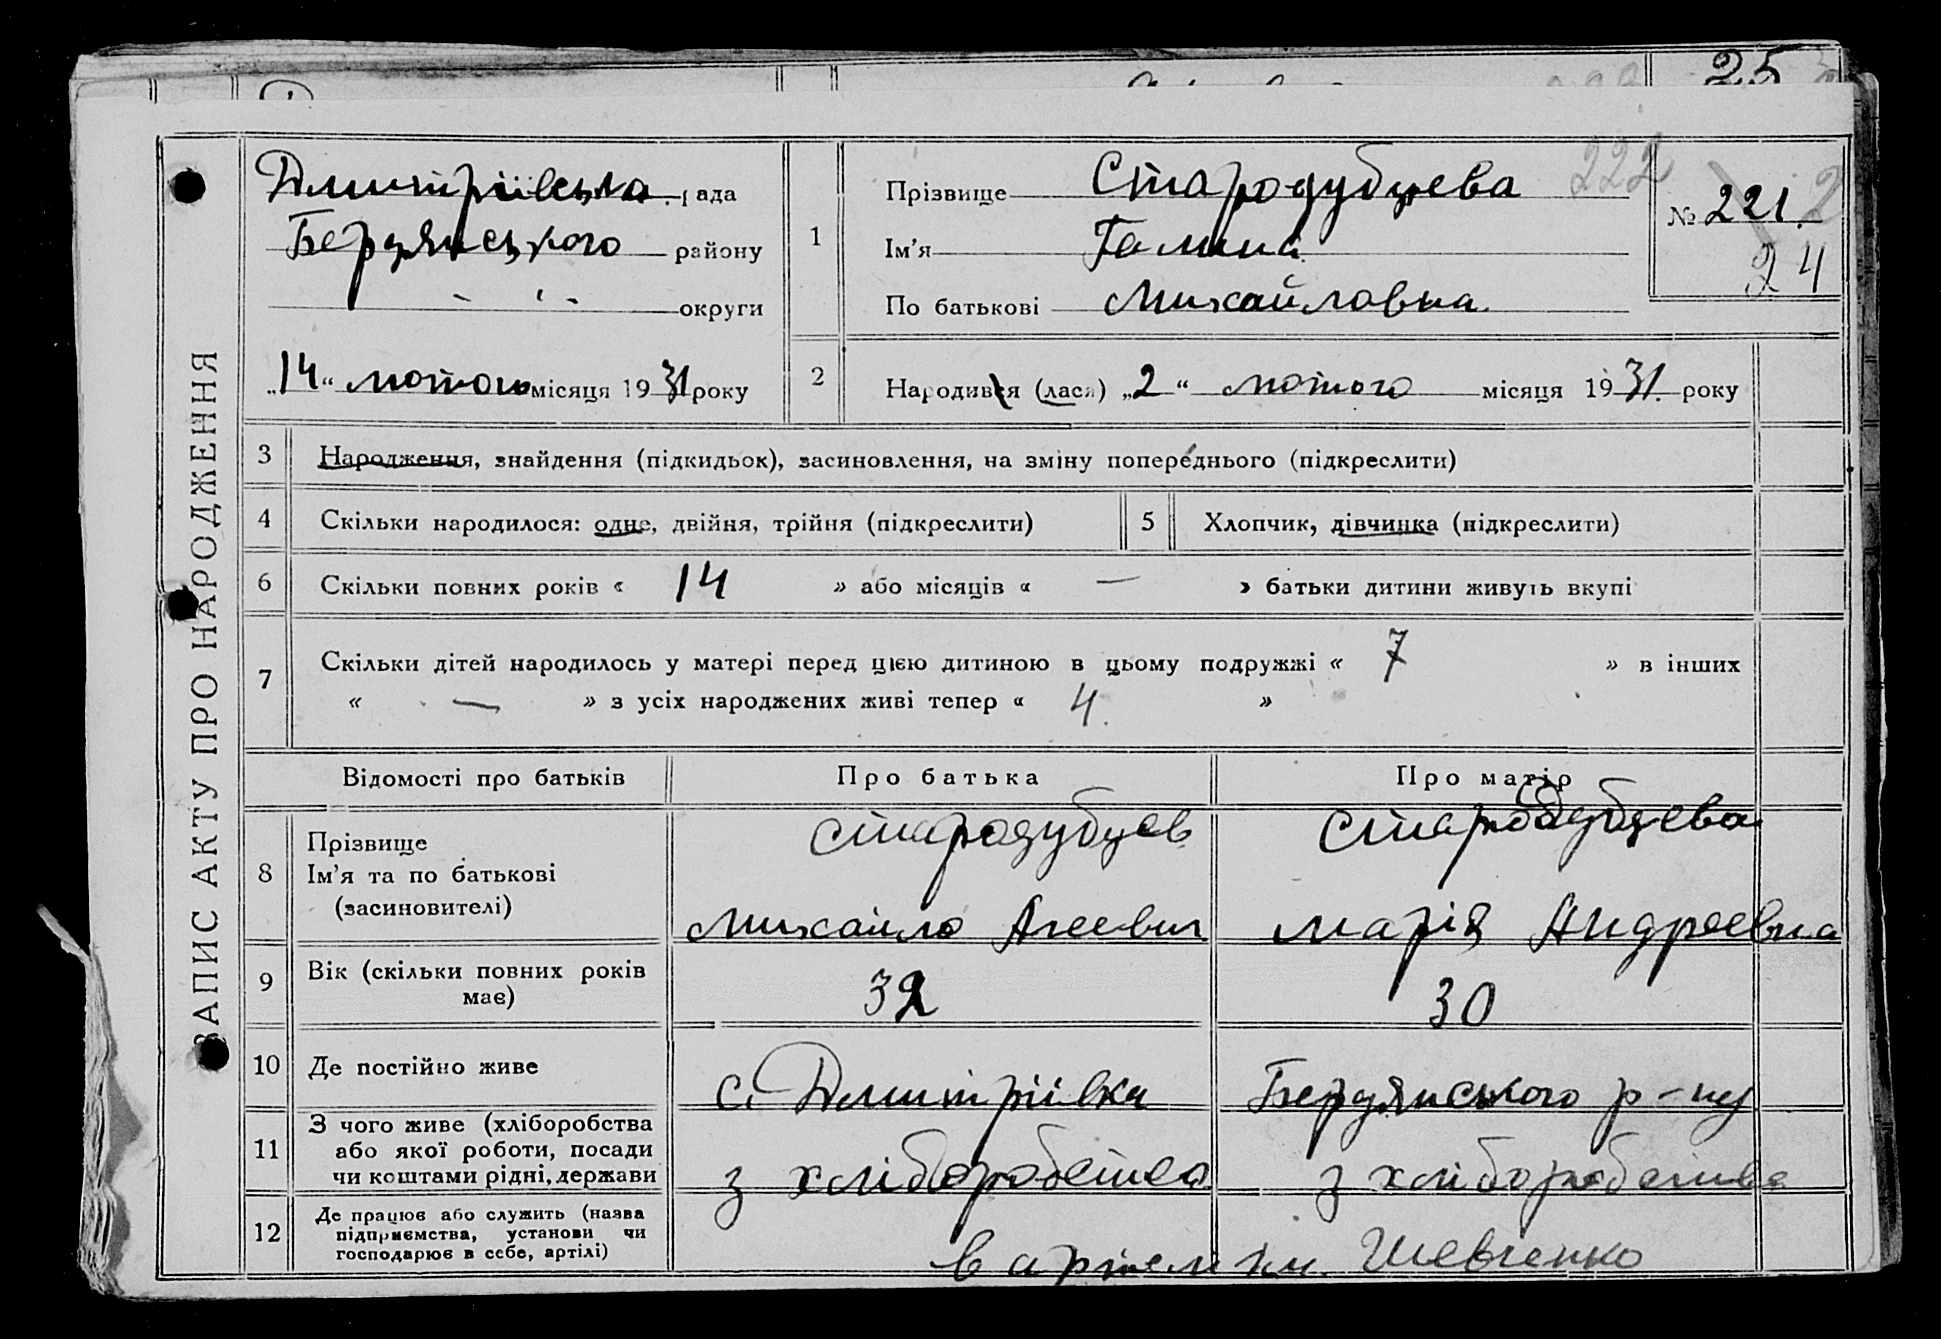 25
ЗАПИС АКТУ ПРО НАРОДЖЕННЯ
Дмитріївська рада
Бердянського району
округи
„14“ лютого місяця 1931 року
1
Прізвище Стародубцева
Ім'я Галина
По батькові Михайловна
222
№ 221.
24
2
Народився (лася) „2“ лютого місяця 1931. року
3 Народження, знайдення (підкидьок), засиновлення, на зміну попереднього (підкреслити)
4 Скільки народилося: одне, двійня, трійня (підкреслити)
5 Хлопчик, дівчинка (підкреслити)
6 Скільки повних років « 14 » або місяців « — » батьки дитини живуть вкупі
7 Скільки дітей народилось у матері перед цією дитиною в цьому подружжі « 7 » в інших
« — » з усіх народжених живі тепер « 4. »
Відомості про батьків Про батька Про матір
8 Прізвище
Ім'я та по батькові
(засиновителі)
Стародубцев
Михайло Агеевич
Стародубцева
Марія Андреевна
9 Вік (скільки повних років
має)
32
30
10 Де постійно живе
с. Дмитріївка Бердянського р-ну
11 З чого живе (хліборобства
або якої роботи, посади
чи коштами рідні, держави
з хліборобства
з хліборобства
12 Де працює або служить (назва
підприємства, установи чи
господарює в себе, артілі)
в артелі ім. Шевченко